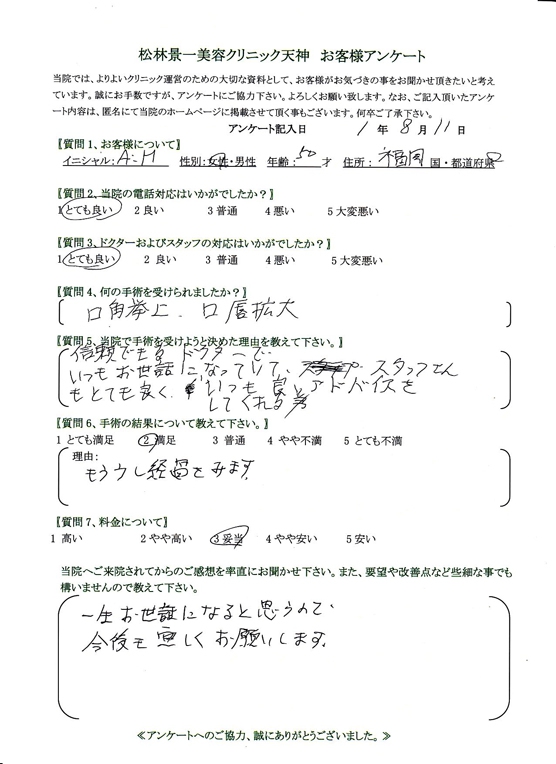 松林景一美容クリニック天神 お客様アンケート
当院では、よりよいクリニック運営のための大切な資料として、お客様がお気づきの事をお聞かせ頂きたいと考え
ています。誠にお手数ですが、アンケートにご協力下さい。よろしくお願い致します。なお、ご記入頂いたアンケ
ート内容は、匿名にて当院のホームページに掲載させて頂く事もございます。何卒ご了承下さい。
アンケート記入日 1年 8月 11日
〖質問1、お客様について〗
イニシャル:A・H 性別:女性・男性 年齢:50才 住所:福岡 国・都道府県
〖質問2、当院の電話対応はいかがでしたか?〗
1 とても良い 2 良い 3 普通 4 悪い 5 大変悪い
〖質問3、ドクターおよびスタッフの対応はいかがでしたか?〗
1 とても良い 2 良い 3 普通 4 悪い 5 大変悪い
〖質問4、何の手術を受けられましたか?〗
口角挙上、口唇拡大
〖質問5、当院で手術を受けようと決めた理由を教えて下さい。〗
信頼できるドクターで
いつもお世話になっていて、スタッフさん
もとても良く、いつも良いアドバイスを
してくれる為
〖質問6、手術の結果について教えて下さい。〗
1 とても満足 2 満足 3 普通 4 やや不満 5 とても不満
理由:
もう少し経過をみます。
〖質問7、料金について〗
1 高い 2 やや高い 3 妥当 4 やや安い 5 安い
当院へご来院されてからのご感想を率直にお聞かせ下さい。また、要望や改善点など些細な事でも
構いませんので教えて下さい。
一生お世話になると思うので、
今後も宜しくお願いします。
≪アンケートへのご協力、誠にありがとうございました。≫